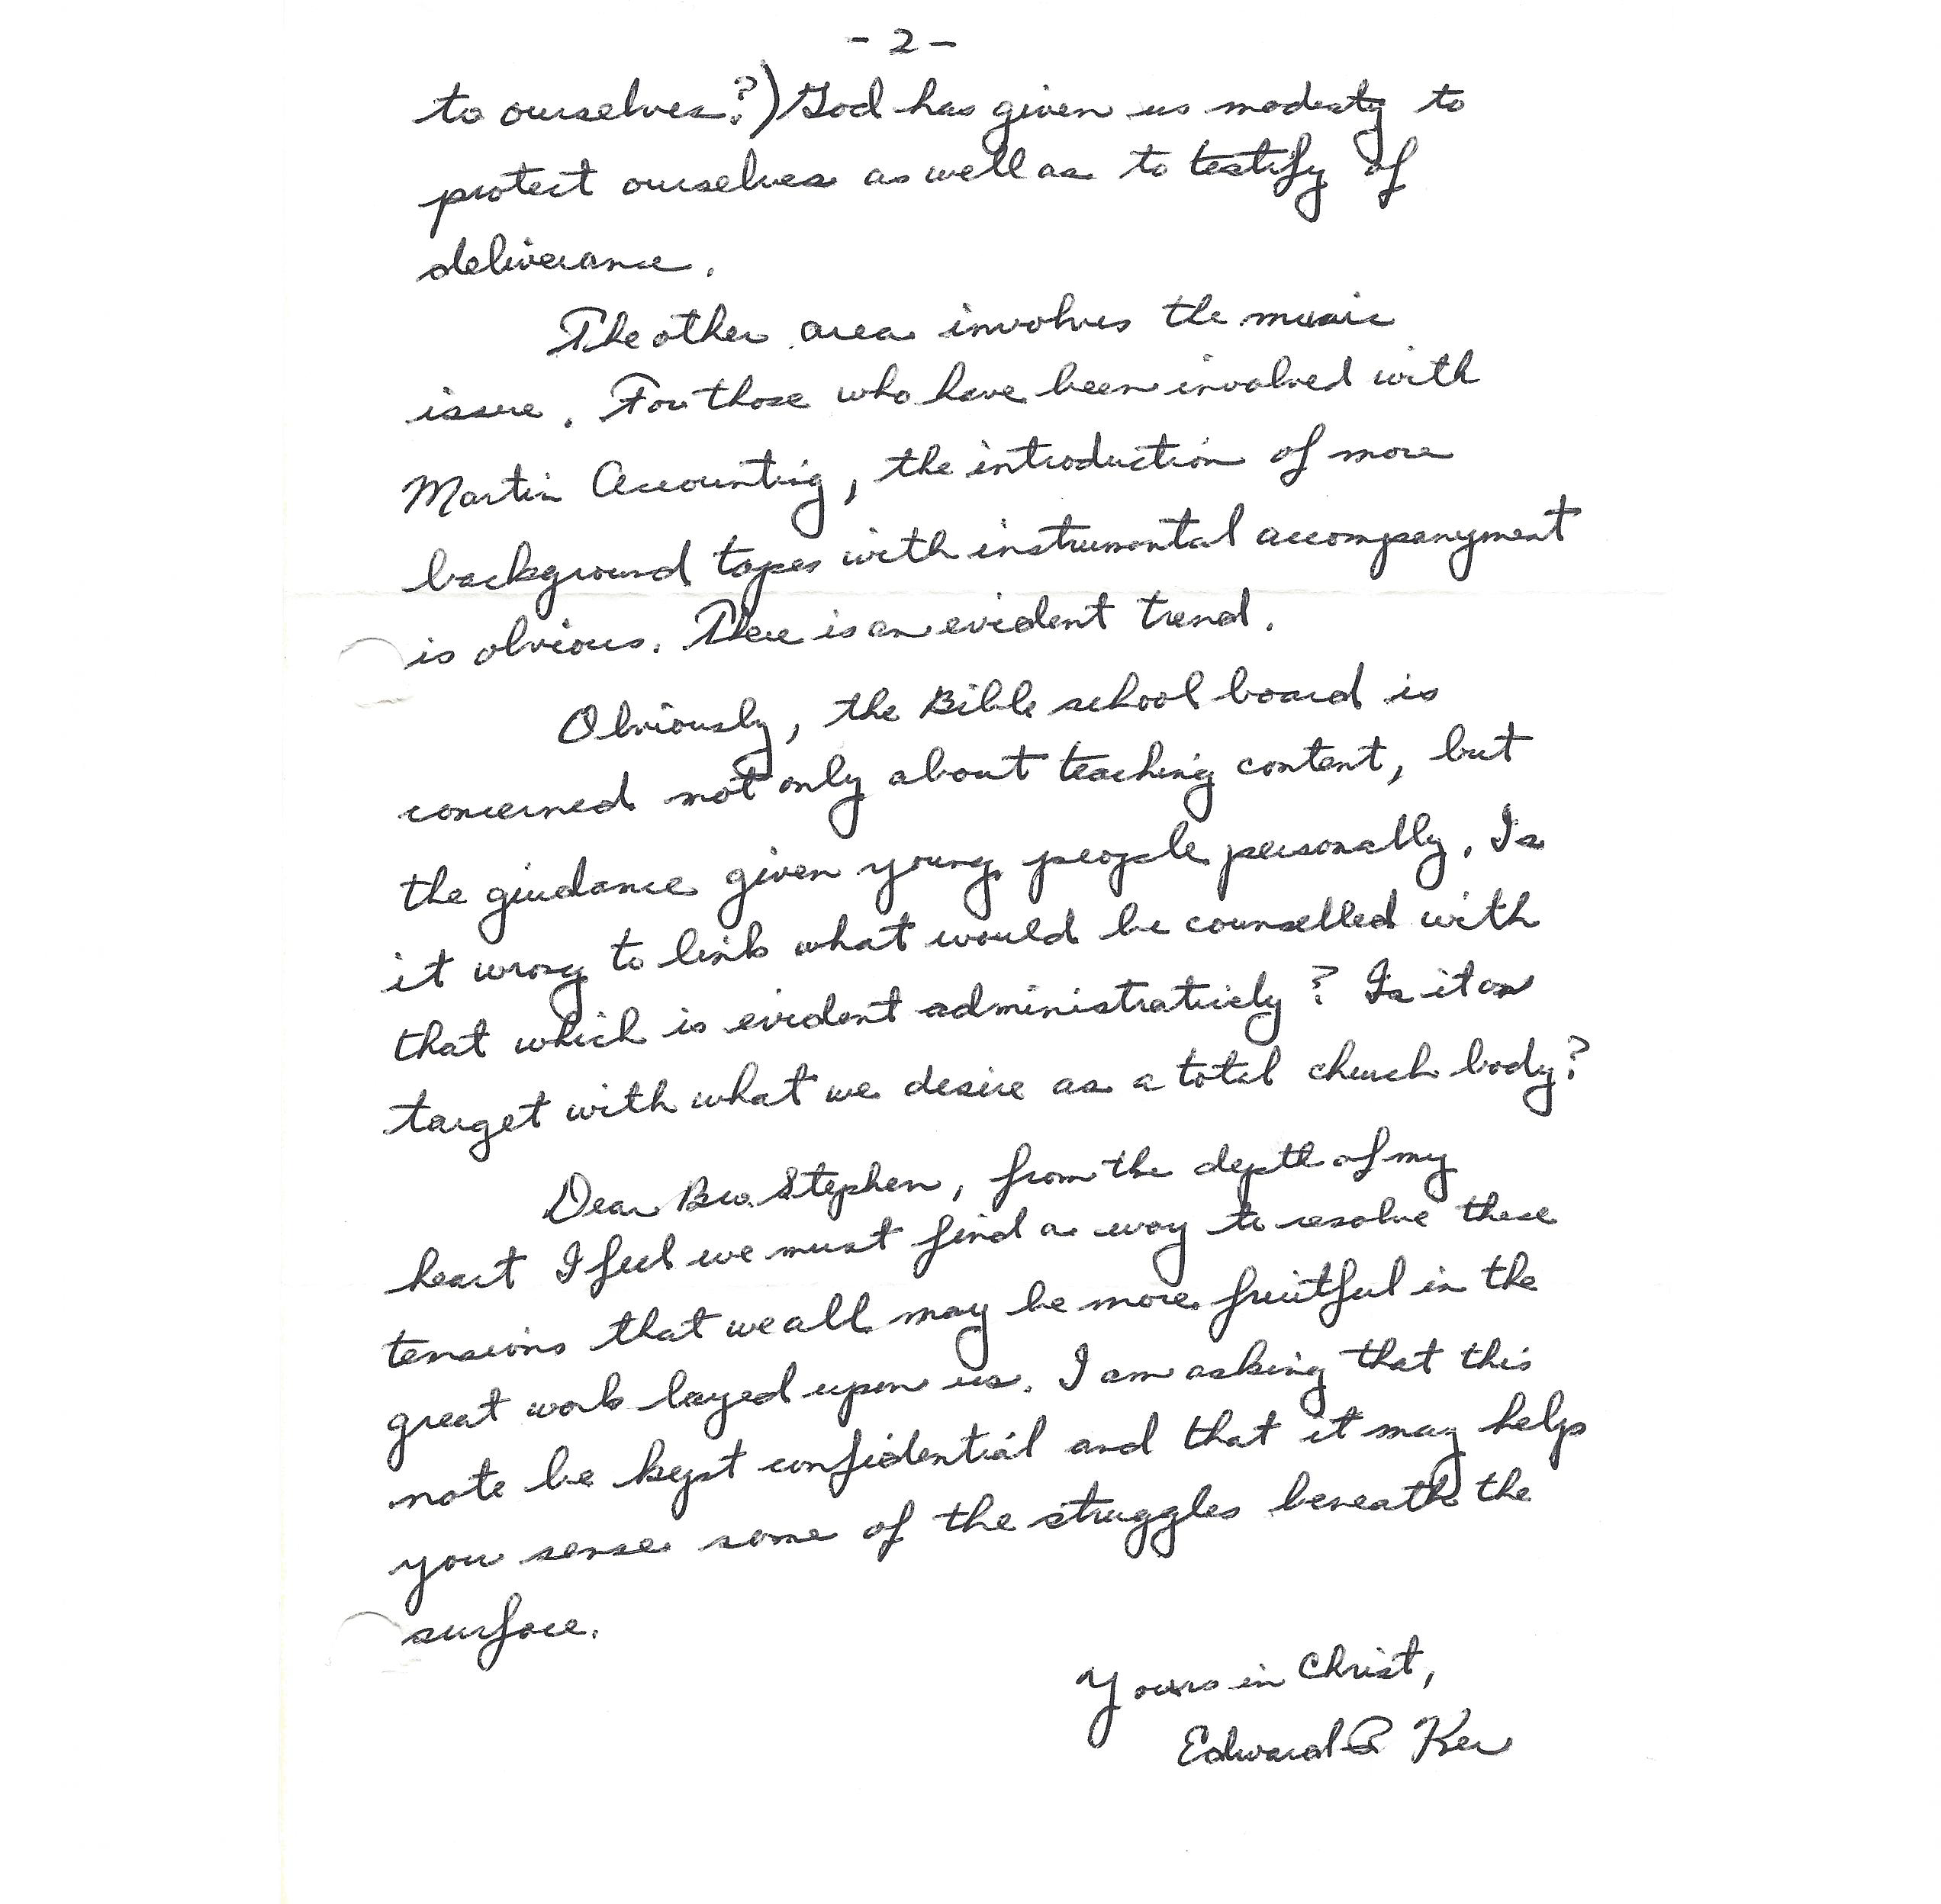 - 2 -
to ourselves?) God has given us modesty to
protect ourselves as well as to testify of
deliverance.
The other area involves the music
issue. For those who have been involved with
Martin Accounting, the introduction of more
background tapes with instrumental accompanyment
is obvious. There is an evident trend.
Obviously, the Bible school board is
concerned not only about teaching content, but
the giudance given young people personally. Is
it wrong to link what would be counselled with
that which is evident administratively? Is it on
target with what we desire as a total church body?
Dear Bro. Stephen, from the depth of my
heart I feel we must find a way to resolve these
tensions that we all may be more fruitful in the
great work layed upon us. I am asking that this
note be kept confidential and that it may help
you sense some of the struggles beneath the
surface.
Yours in Christ,
Edward